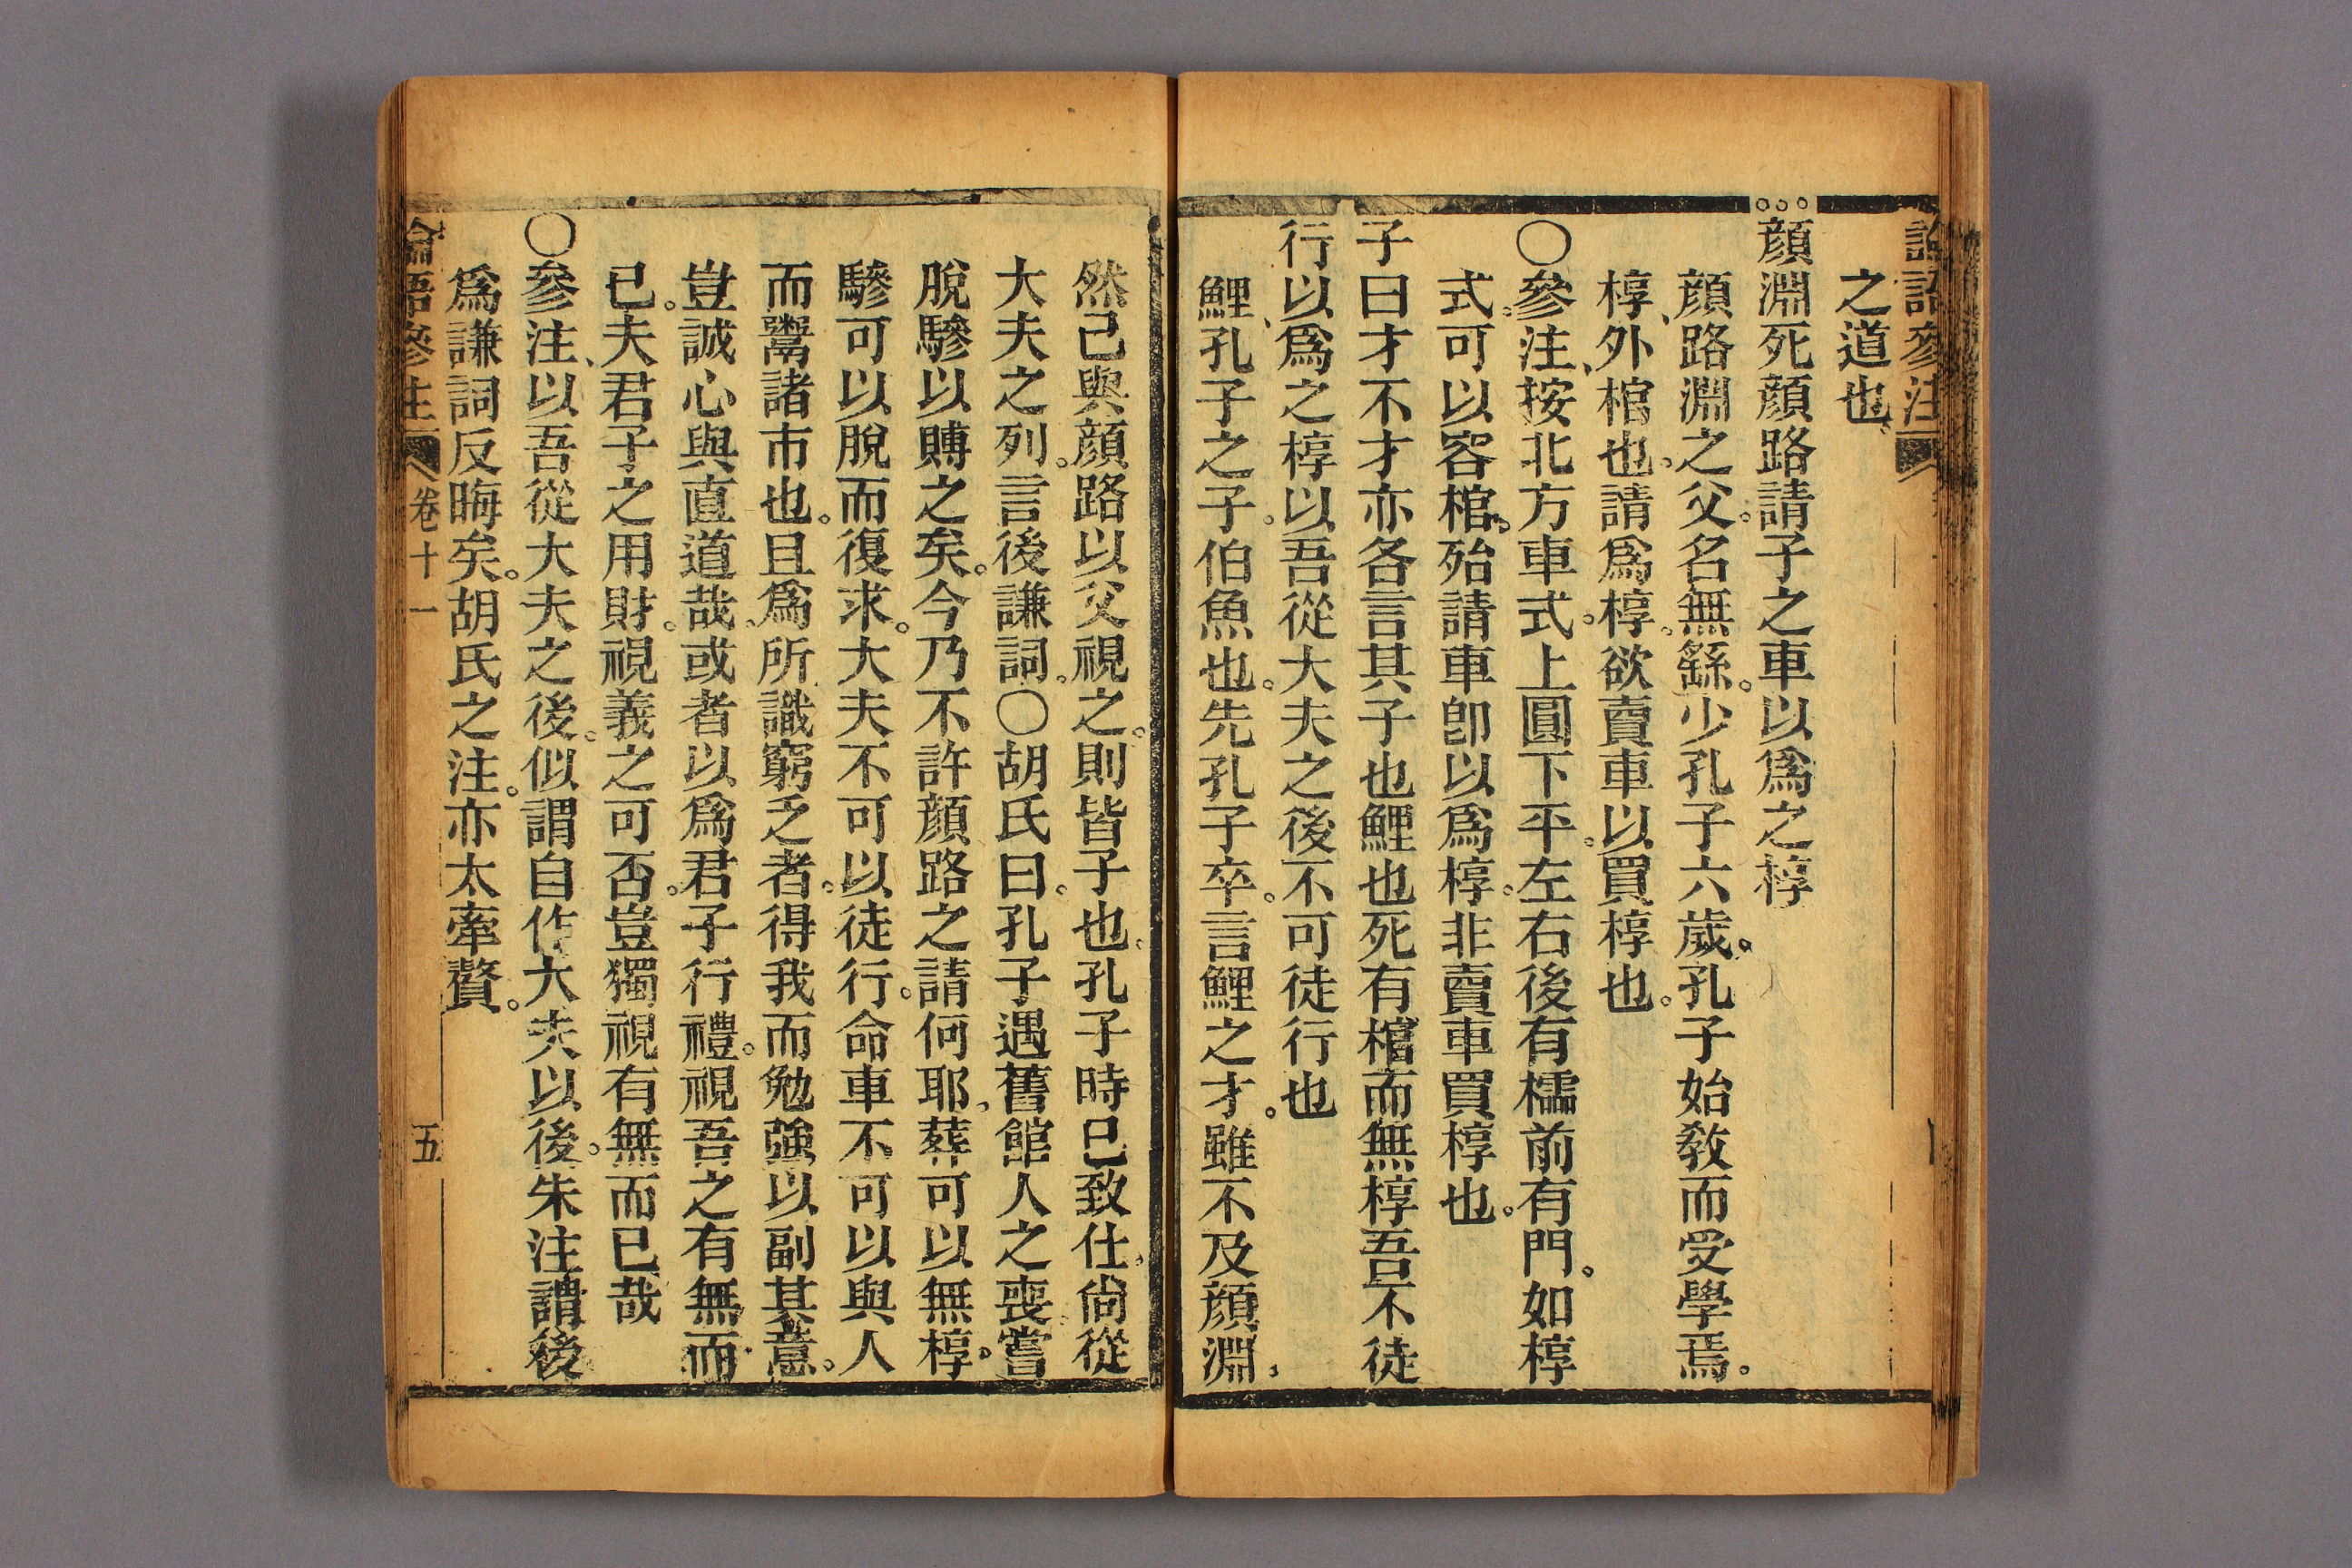 論語參注
之道也
顏淵死顏路請子之車以爲之椁
顏路淵之父。名無繇。少孔子六歲。孔子始敎而受學焉。
椁、外棺也。請爲椁。欲賣車以買椁也。
〇參注、按北方車式。上圓下平。左右後有檽前有門。如椁
式。可以容棺。殆請車卽以爲椁。非賣車買椁也。
子曰才不才亦各言其子也鯉也死有棺而無椁吾不徒
行以爲之椁以吾從大夫之後不可徒行也
鯉、孔子之子。伯魚也。先孔子卒。言鯉之才。雖不及顏淵、
然己與顏路以父視之。則皆子也。孔子時已致仕。尙從
大夫之列。言後謙詞。〇胡氏曰。孔子遇舊館人之喪。嘗
脫驂以賻之矣。今乃不許顏路之請何耶。葬可以無椁。
驂可以脫而復求。大夫不可以徒行。命車不可以與人
而鬻諸市也。且爲所識窮乏者。得我而勉強以副其意。
豈誠心與直道哉。或者以爲君子行禮。視吾之有無而
已。夫君子之用財。視義之可否。豈獨視有無而已哉
〇參注、以吾從大夫之後。似謂自作大夫以後。朱注謂後
爲謙詞反晦矣。胡氏之注。亦太牽贅。
論語參注 卷十一 五